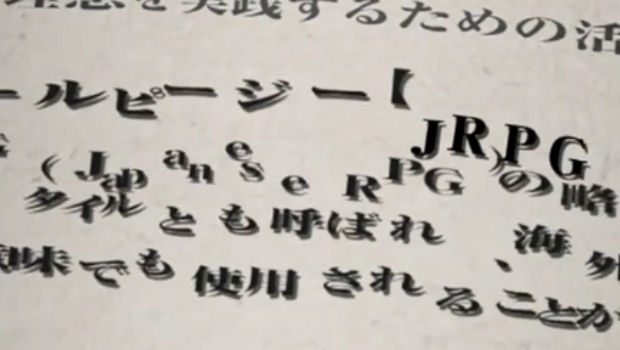 を実践するための活
ールピージー【JRPG
(Japanese RPG)の略
タイルとも呼ばれ、海外
味でも使用されることが